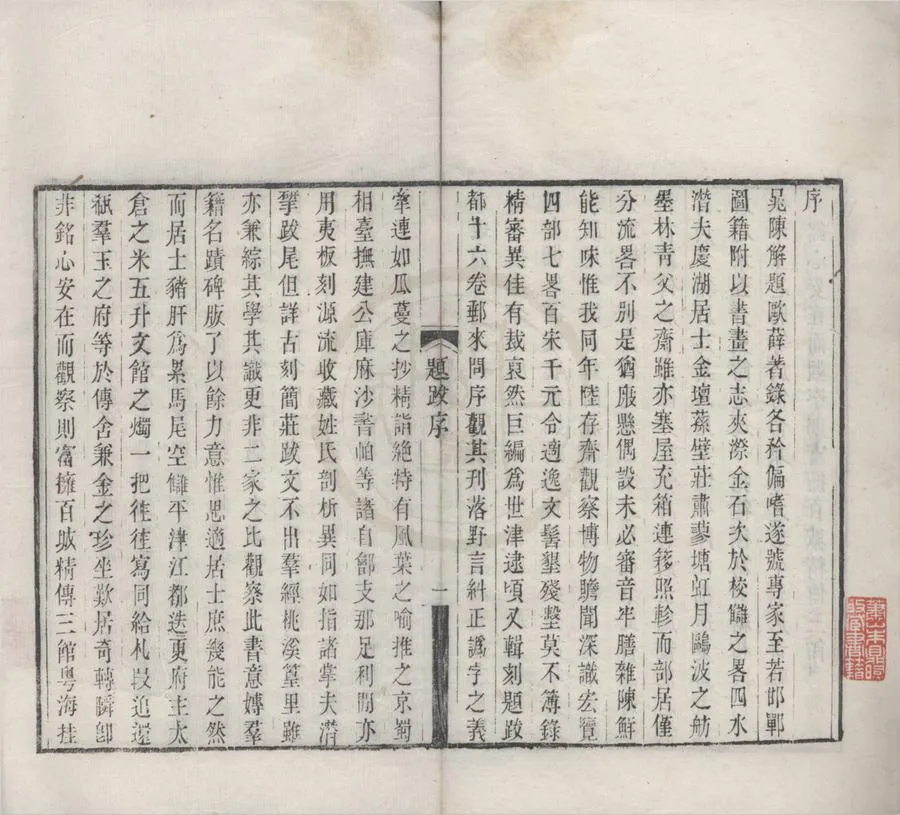 序
晁陳解題歐薛著錄各矜偏嗜遂號專家至若邯鄲
圖籍附以書畫之志夾漈金石次於校讎之畧四水
潛夫慶湖居士金壇蓀壁莊肅蓼塘虹月鷗波之舫
墨林青父之齋雖亦塞屋充箱連簃照軫而部居僅
分流畧不別是猶廏懸偶設未必審音牢膳雜陳鮮
能知味惟我同年陸存齋觀察博物贍聞深識宏覽
四部七畧百宋千元令適逸文鬐墾殘墼莫不簿錄
精審異佳有裁裒然巨編爲世津逮頃又輯刻題跋
都十六卷郵來問序觀其刋落野言糾正譌字之義
題跋序
一
牽連如瓜蔓之抄精詣絶特有風葉之喻推之京蜀
相臺撫建公庫麻沙書帕等諸自鄶支那足利閒亦
用夷板刻源流收藏姓氏剖析異同如指諸掌夫潛
揅跋尾但詳古刻簡莊跋文不出羣經桃溪篁里雖
亦兼綜其學其識更非二家之比觀察此書意媾羣
籍名蹟碑版了以餘力意惟思適居士庶幾能之然
而居士豬肝爲累馬尾空讎平津江都迭更府主太
倉之米五升文館之燭一把徃徃寫同給札叚追還
瓻羣玉之府等於傳舍兼金之珍坐歎居奇轉瞬卽
非銘心安在而觀察則富擁百城精傳三館粤海挂